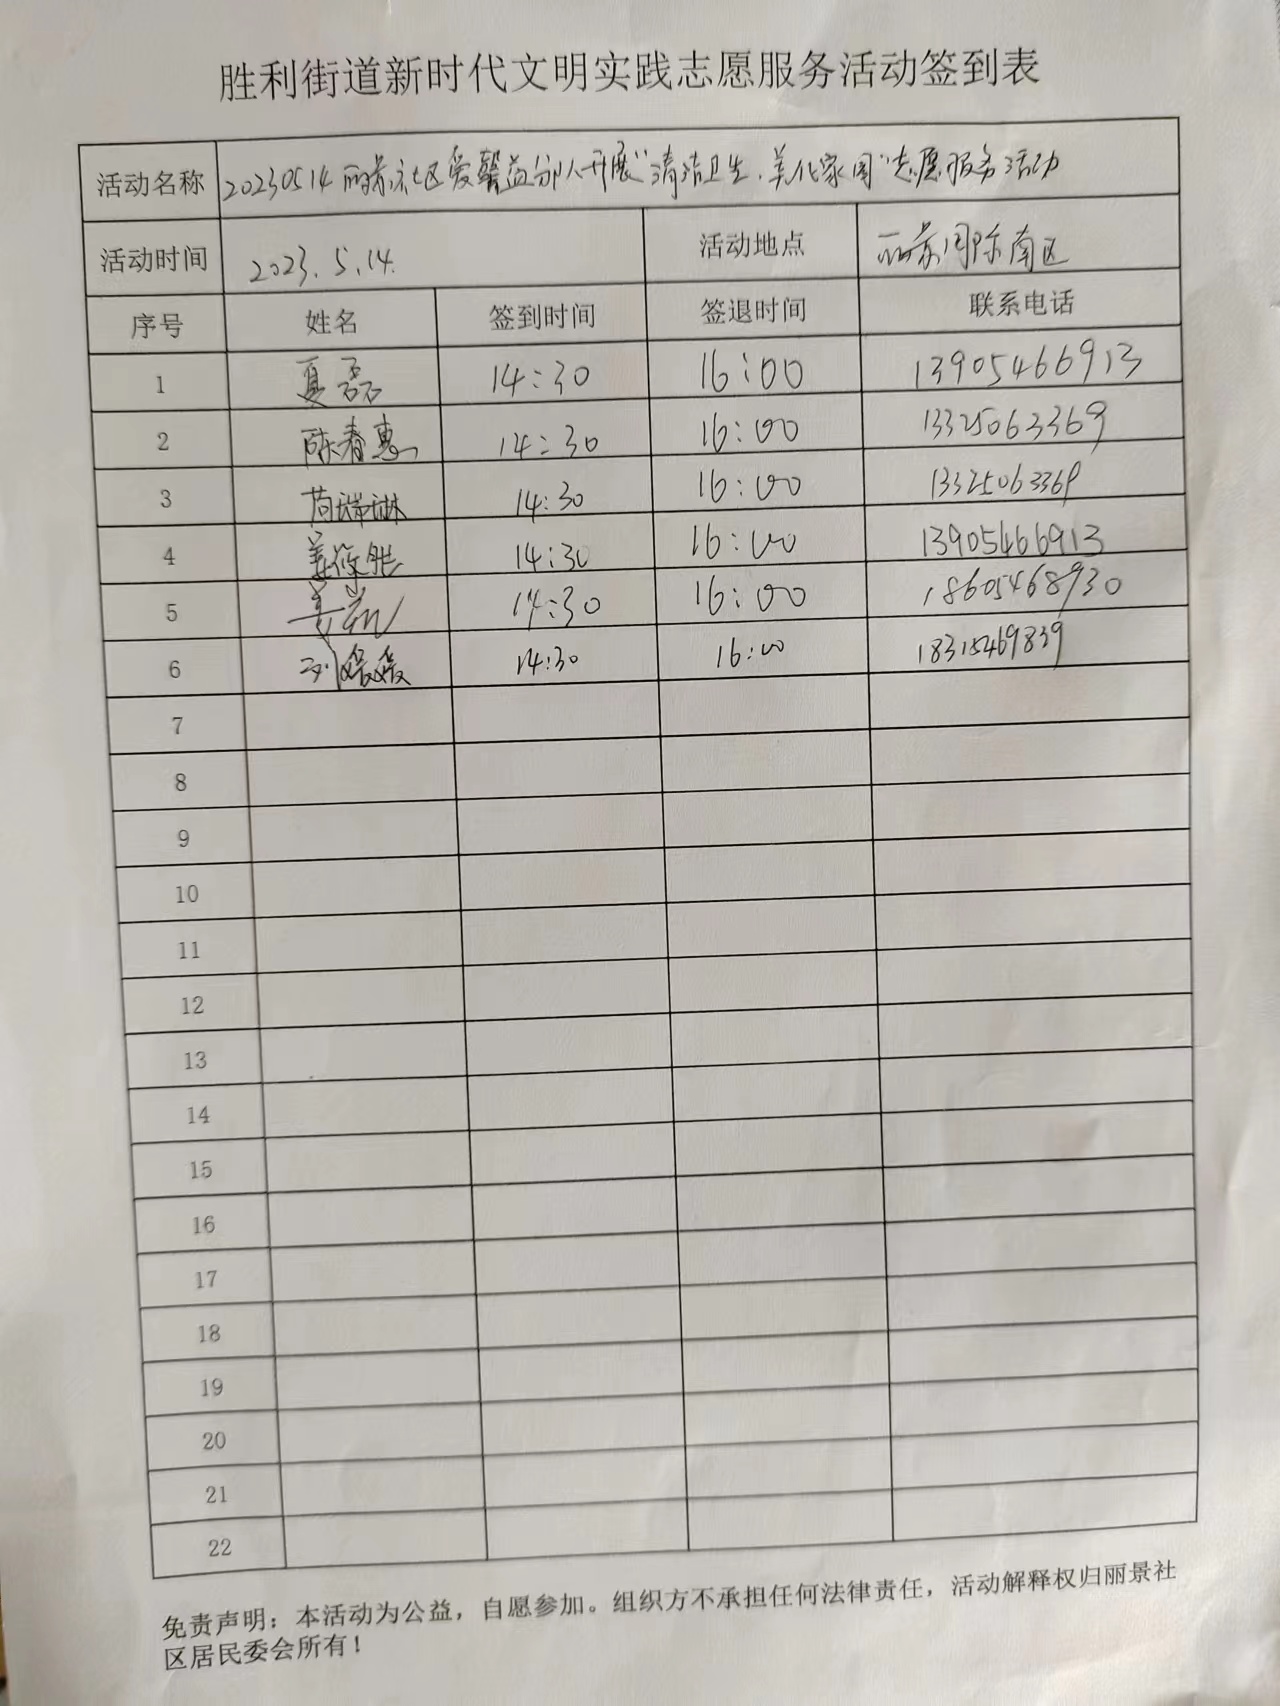 胜利街道新时代文明实践志愿服务活动签到表
活动名称 20230514丽景社区爱馨益分队开展“清洁卫生、美化家园”志愿服务活动
活动时间 2023.5.14. 活动地点 丽景国际南区
序号 姓名 签到时间 签退时间 联系电话
1 夏磊 14:30 16:00 13905466913
2 陈春惠 14:30 16:00 13325063369
3 14:30 16:00 13325063369
4 14:30 16:00 13905466913
5 14:30 16:00 18605468930
6 刘媛媛 14:30 16:00 18315469839
7
8
9
10
11
12
13
14
15
16
17
18
19
20
21
22
免责声明：本活动为公益，自愿参加。组织方不承担任何法律责任，活动解释权归丽景社
区居民委会所有！